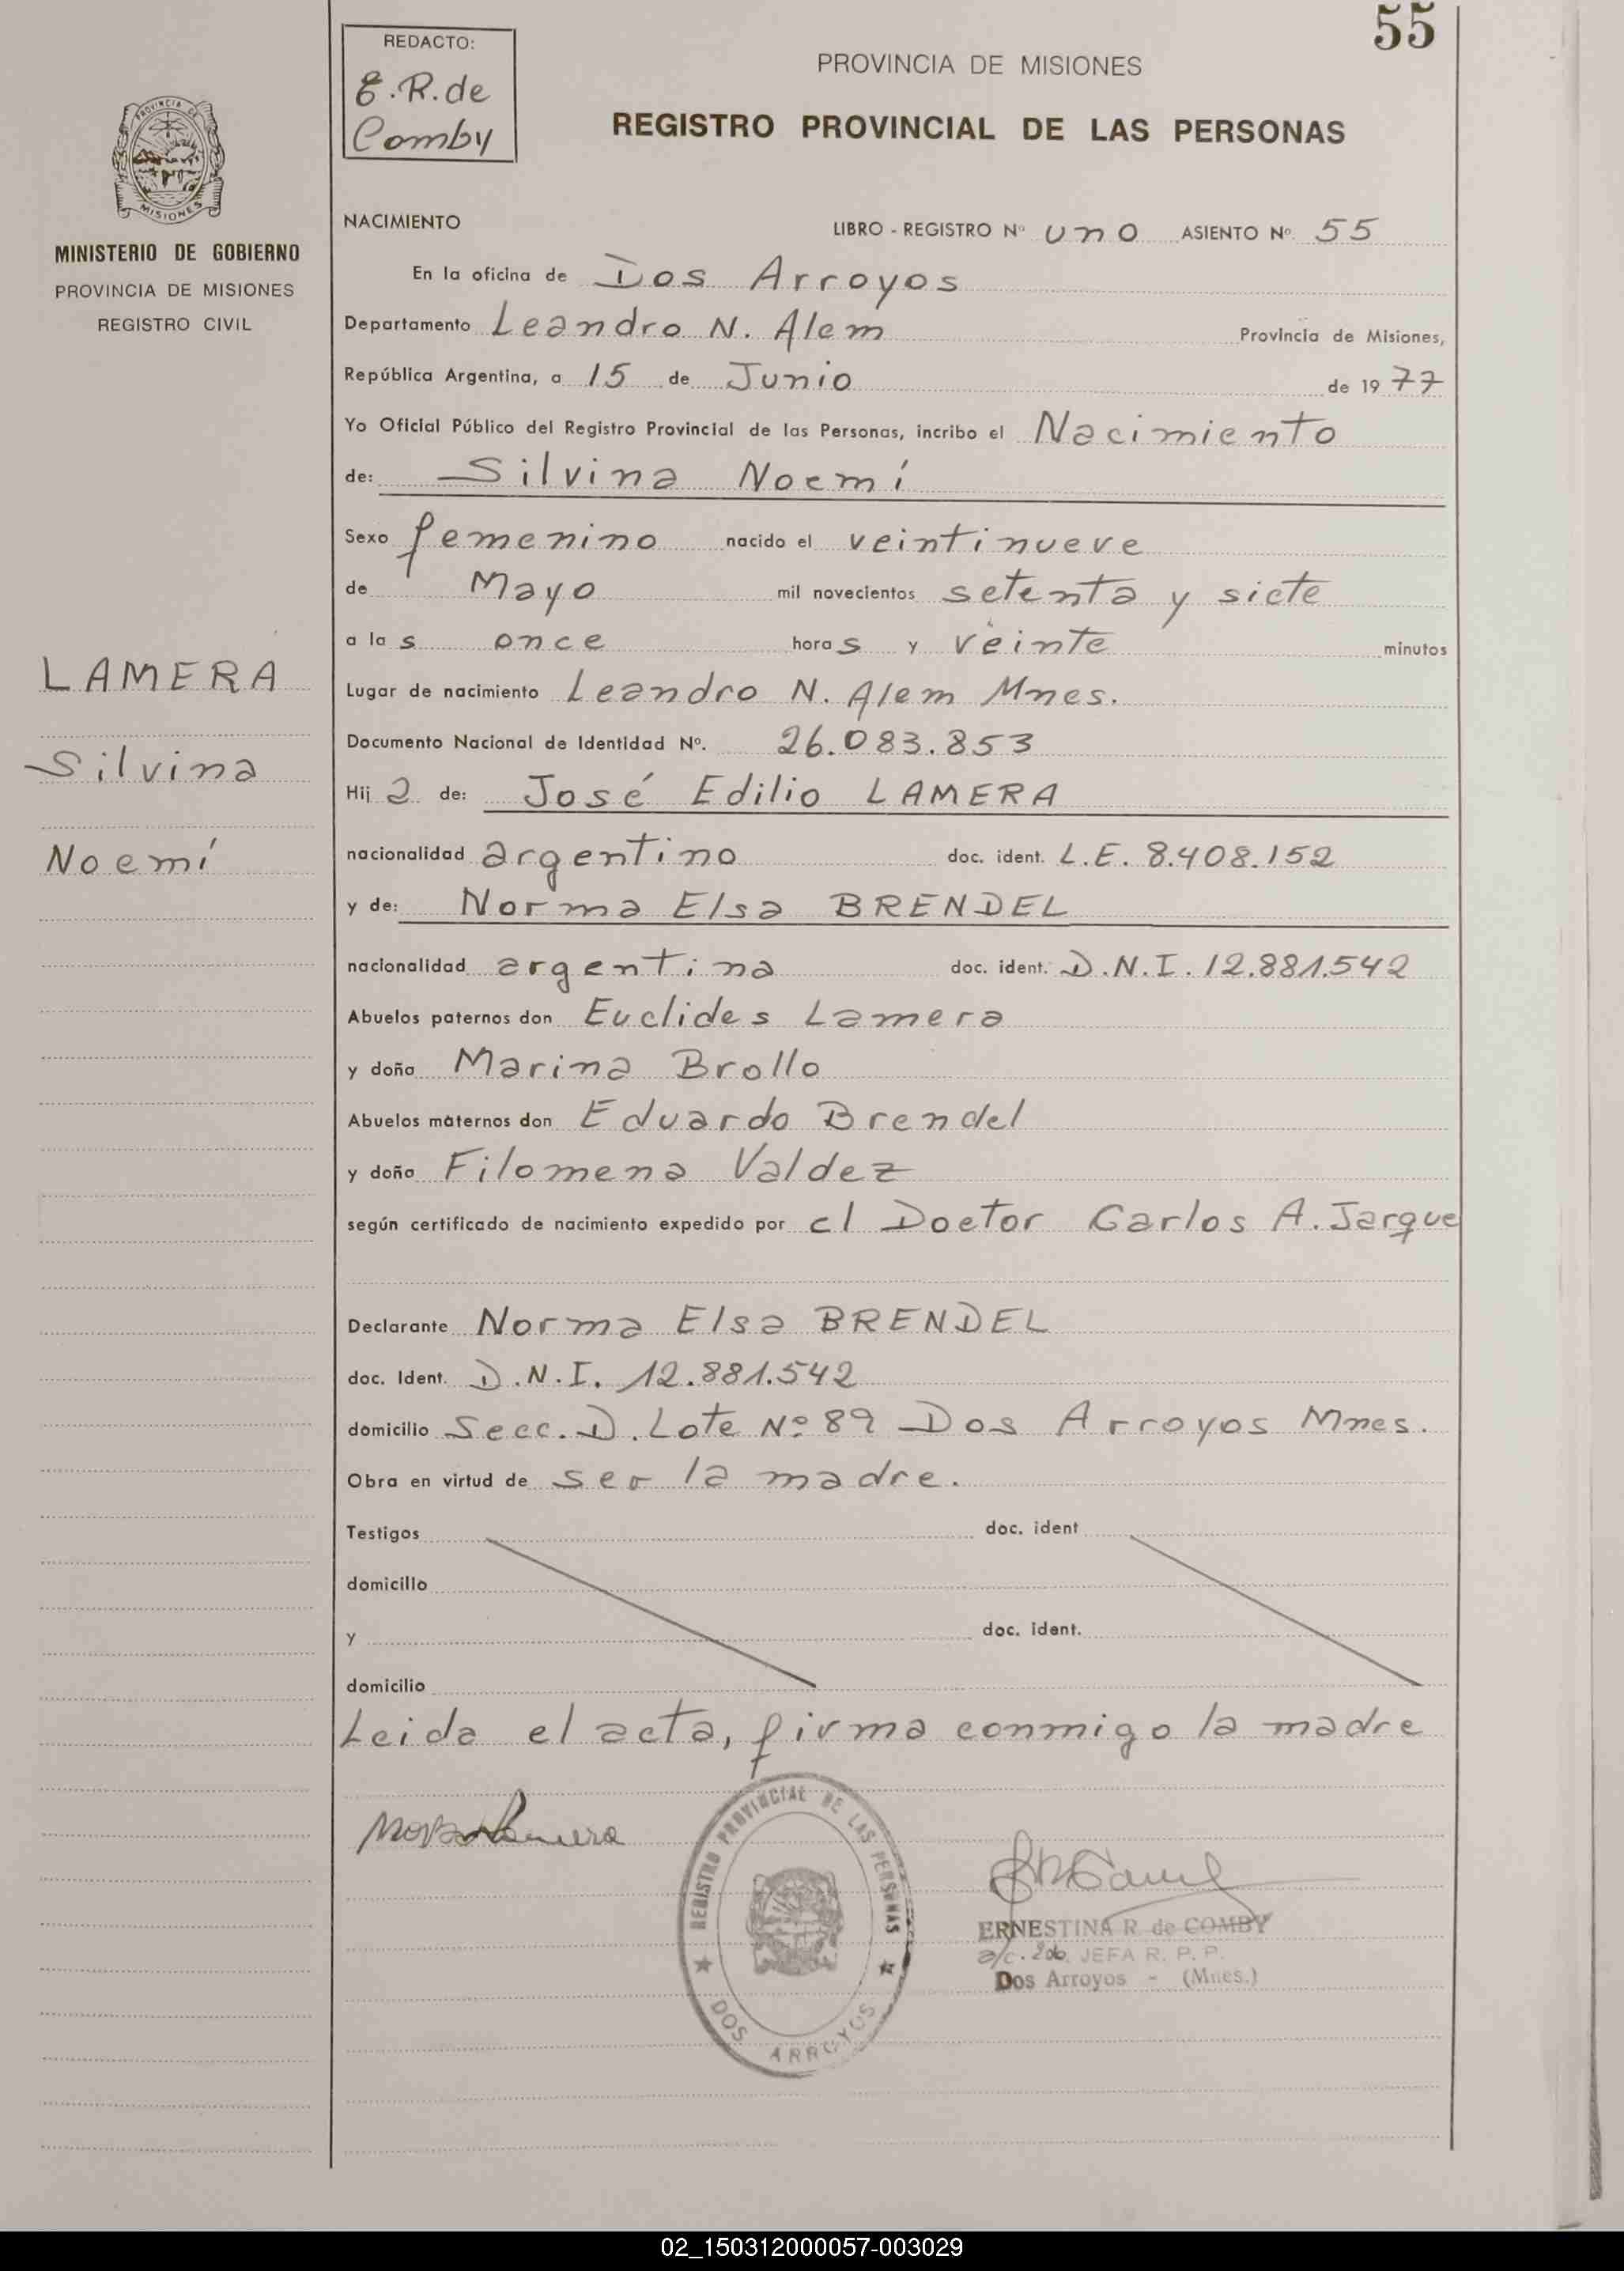 55
REDACTO:
E.R. de
Comby
PROVINCIA DE MISIONES
REGISTRO PROVINCIAL DE LAS PERSONAS
PROVINCIA DE
MISIONES
MINISTERIO DE GOBIERNO
PROVINCIA DE MISIONES
REGISTRO CIVIL
NACIMIENTO LIBRO - REGISTRO Nº uno ASIENTO Nº. 55
En la oficina de Dos Arroyos
Departamento Leandro N. Alem Provincia de Misiones,
República Argentina, a 15 de Junio de 1977
Yo Oficial Público del Registro Provincial de las Personas, incribo el Nacimiento
de: Silvina Noemí
Sexo femenino nacido el veintinueve
de Mayo mil novecientos setenta y siete
a las once horas y veinte minutos
LAMERA
Silvina
Noemí
Lugar de nacimiento Leandro N. Alem Mnes.
Documento Nacional de Identidad Nº. 26.083.853
Hija de: José Edilio LAMERA
nacionalidad argentino doc. ident. L.E. 8.408.152
y de: Norma Elsa BRENDEL
nacionalidad argentina doc. ident. D.N.I. 12.881.542
Abuelos paternos don Euclides Lamera
y doña Marina Brollo
Abuelos maternos don Eduardo Brendel
y doña Filomena Valdez
según certificado de nacimiento expedido por el Doctor Carlos A. Jarque
Declarante Norma Elsa BRENDEL
doc. Ident. D.N.I. 12.881.542
domicilio Secc. D. Lote Nº 89 Dos Arroyos Mnes.
Obra en virtud de ser la madre.
Testigos doc. ident
domicilio
y doc. ident.
domicilio
Leida el acta, firma conmigo la madre
REGISTRO PROVINCIAL DE LAS PERSONAS
DOS ARROYOS
ERNESTINA R. de COMBY
a/c. JEFA R. P. P.
Dos Arroyos - (Mnes.)
02_150312000057-003029